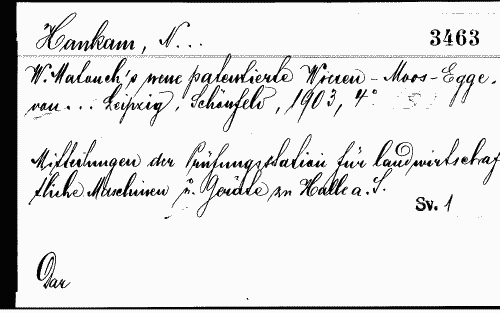 Hankam, N...
3463
W. Malouch's neue patentierte Wiesen-Moos-Egge.
von ... Leipzig, Schönfeld, 1903, 4°
Mitteilungen der Prüfungsstation für landwirtschaf
tliche Maschinen u. Geräte zu Halle a. S.
Sv. 1
Dar